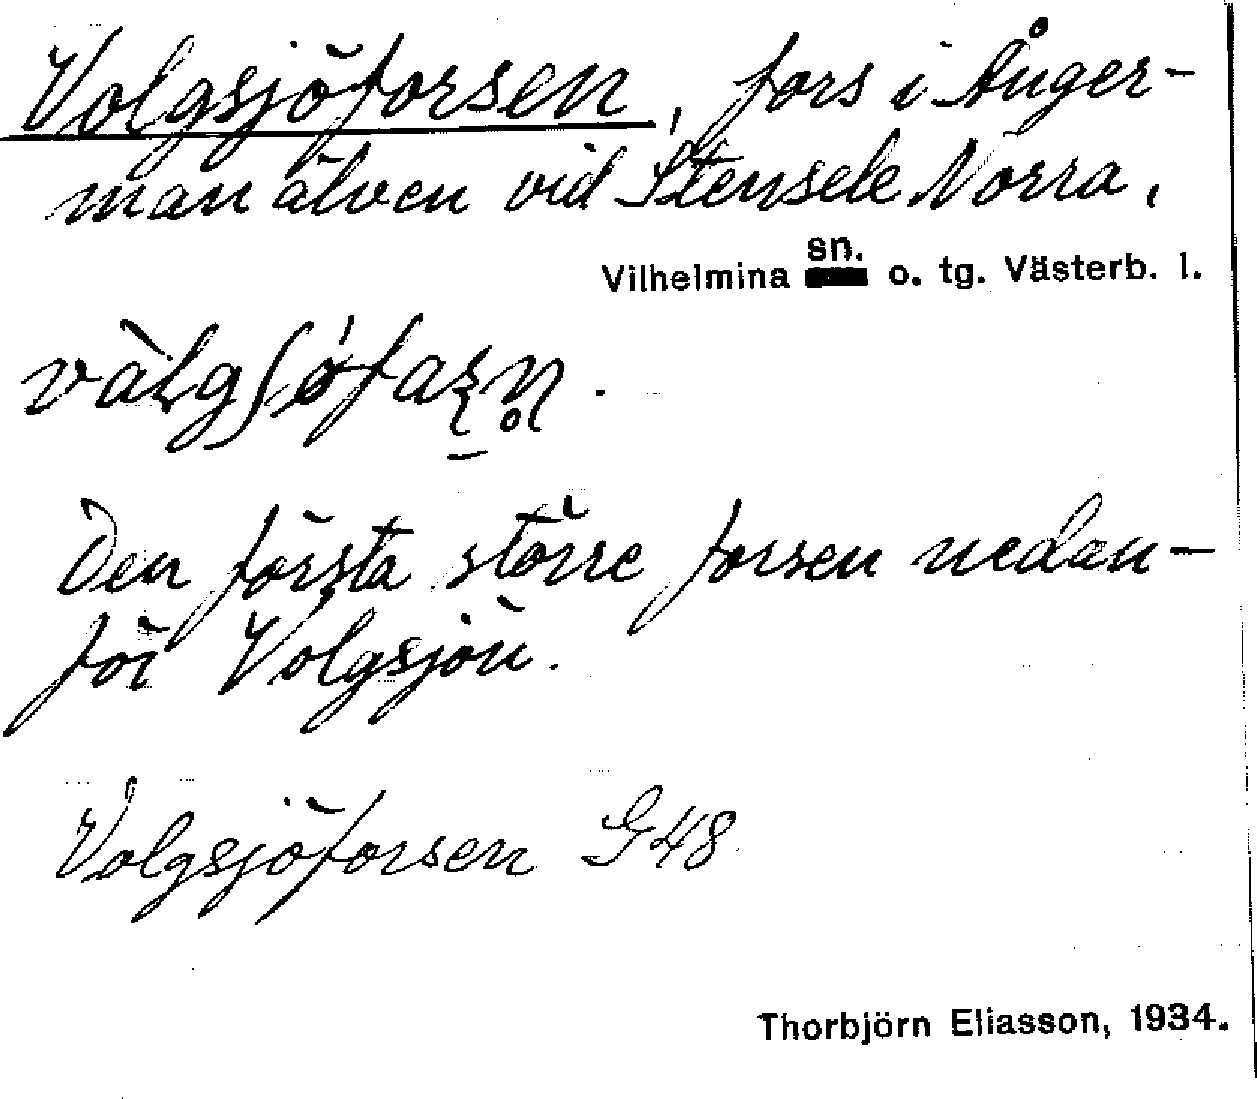 Volgsjöforsen, fors i Ånger-
manälven vid Stensele Norra,
sn.
Vilhelmina o. tg. Västerb. l.
Den första större forsen nedan-
för Volgsjön.
Volgsjöforsen G48
Thorbjörn Eliasson, 1934.